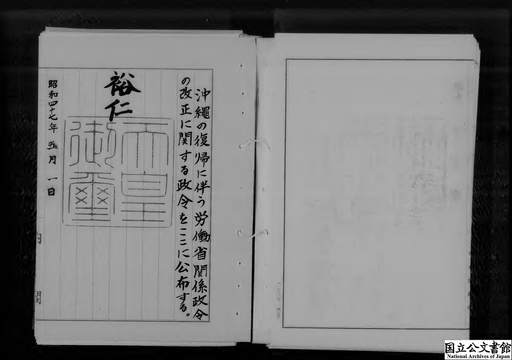 沖縄の復帰に伴う労働省関係政令
の改正に関する政令をここに公布する。
裕仁
天皇
御璽
昭和四十七年五月一日
国立公文書館
National Archives of Japan